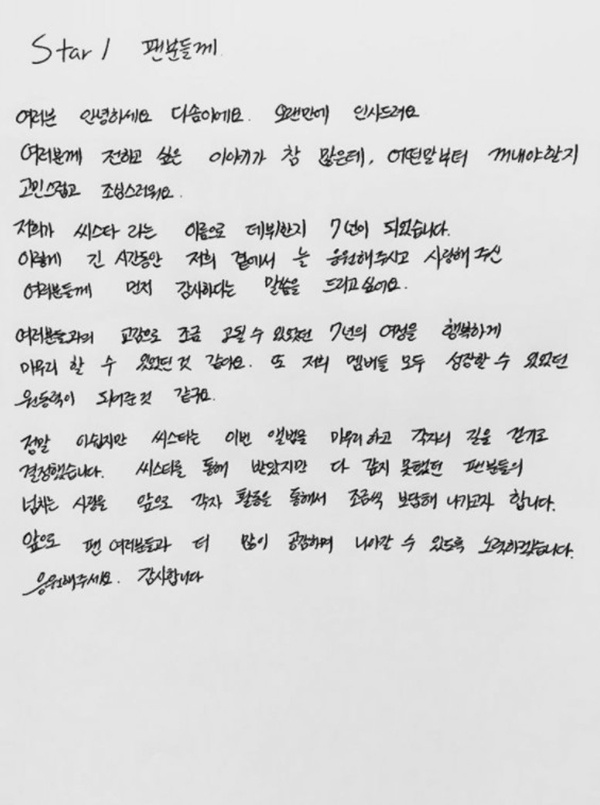 Star1 팬분들께.
여러분 안녕하세요 다솜이에요. 오랜만에 인사드려요
여러분께 전하고 싶은 이야기가 참 많은데, 어떤말부터 꺼내야할지
고민스럽고 조심스러워요.
저희가 씨스타 라는 이름으로 데뷔한지 7년이 되었습니다.
이렇게 긴 시간동안 저희 곁에서 늘 응원해주시고 사랑해 주신
여러분들께 먼저 감사하다는 말씀을 드리고 싶어요.
여러분들과의 교감으로 조금 길 수 있었던 7년의 여정을 행복하게
마무리 할 수 있었던 것 같아요. 또 저희 멤버들 모두 성장할 수 있었던
원동력이 되어준것 같구요.
정말 아쉽지만 씨스타는 이번 앨범을 마무리 하고 각자의 길을 걷기로
결정했습니다. 씨스타를 통해 받았지만 다 갚지 못했던 팬분들의
넘치는 사랑을 앞으로 각자 활동을 통해서 조금씩 보답해 나가고자 합니다.
앞으로 팬 여러분들과 더 많이 공감하며 나아갈 수 있도록 노력하겠습니다.
응원해주세요. 감사합니다